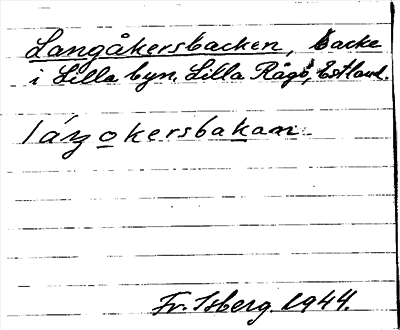 Langåkersbacken, backe
i Lilla byn. Lilla Rågö, Estland.
Fr. Isberg. 1944.